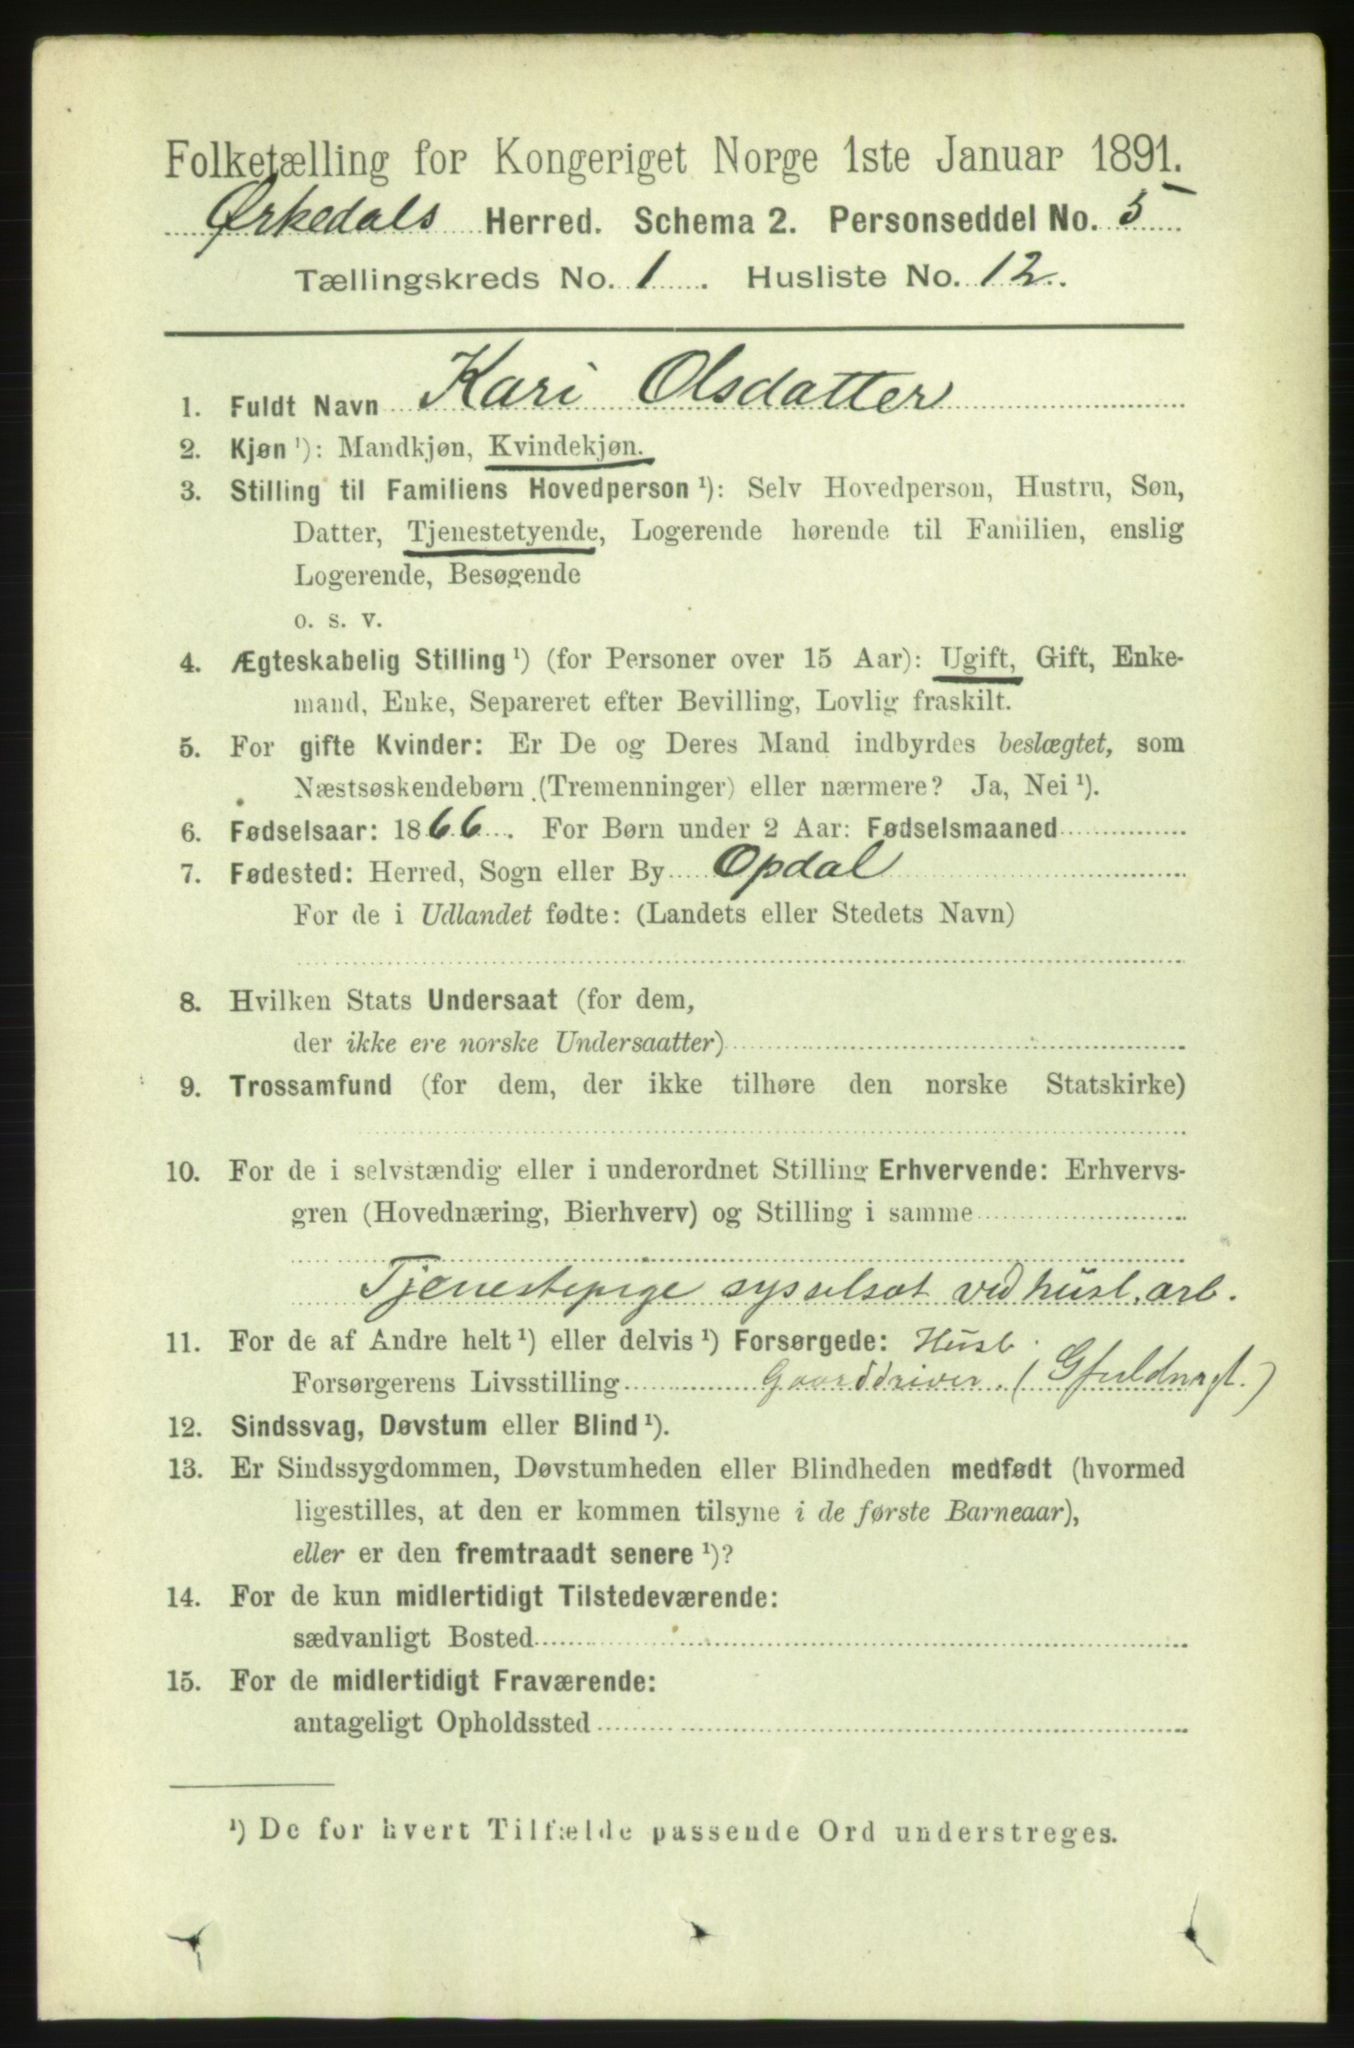 Folketælling for Kongeriget Norge 1ste Januar 1891.
Ørkedals Herred. Schema 2. Personseddel No. 5
Tællingskreds No. 1. Husliste No. 12.
1. Fuldt Navn Kari Olsdatter
2. Kjøn ¹): Mandkjøn, Kvindekjøn.
3. Stilling til Familiens Hovedperson ¹): Selv Hovedperson, Hustru, Søn,
Datter, Tjenestetyende, Logerende hørende til Familien, enslig
Logerende, Besøgende
o. s. v.
4. Ægteskabelig Stilling ¹) (for Personer over 15 Aar): Ugift, Gift, Enke-
mand, Enke, Separeret efter Bevilling, Lovlig fraskilt.
5. For gifte Kvinder: Er De og Deres Mand indbyrdes beslægtet, som
Næstsøskendebørn (Tremenninger) eller nærmere? Ja, Nei ¹).
6. Fødselsaar: 1866. For Børn under 2 Aar: Fødselsmaaned
7. Fødested: Herred, Sogn eller By Opdal
For de i Udlandet fødte: (Landets eller Stedets Navn)
8. Hvilken Stats Undersaat (for dem,
der ikke ere norske Undersaatter)
9. Trossamfund (for dem, der ikke tilhøre den norske Statskirke)
10. For de i selvstændig eller i underordnet Stilling Erhvervende: Erhvervs-
gren (Hovednæring, Bierhverv) og Stilling i samme
Tjenestepige sysselsat ved husl. arb.
11. For de af Andre helt ¹) eller delvis ¹) Forsørgede: Husb.
Forsørgerens Livsstilling Gaarddriver.
12. Sindssvag, Døvstum eller Blind ¹).
13. Er Sindssygdommen, Døvstumheden eller Blindheden medfødt (hvormed
ligestilles, at den er kommen tilsyne i de første Barneaar),
eller er den fremtraadt senere ¹)?
14. For de kun midlertidigt Tilstedeværende:
sædvanligt Bosted
15. For de midlertidigt Fraværende:
antageligt Opholdssted
¹) De for hvert Tilfælde passende Ord understreges.